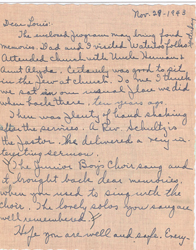 Nov. 29-1943
Dear Louis:
The enclosed program may bring fond
memories. Dad and I visited Waterloo folks
Attended church with Uncle Herman &
Aunt Alyda. Certainly was good to sit
in the pew at church. Do you I think
we sat in our usual place we did
when back there, ten years ago.
There was plenty of hand shaking
after the services. A Rev. Schultz is
the Pastor. He delivered a very in-
teresting sermon.
The Junior Boys Choir sang and
it brought back dear memories,
when you used to sing with the
choir. The lovely solos you sang are
well remembered.
Hope you are well and safe. Every